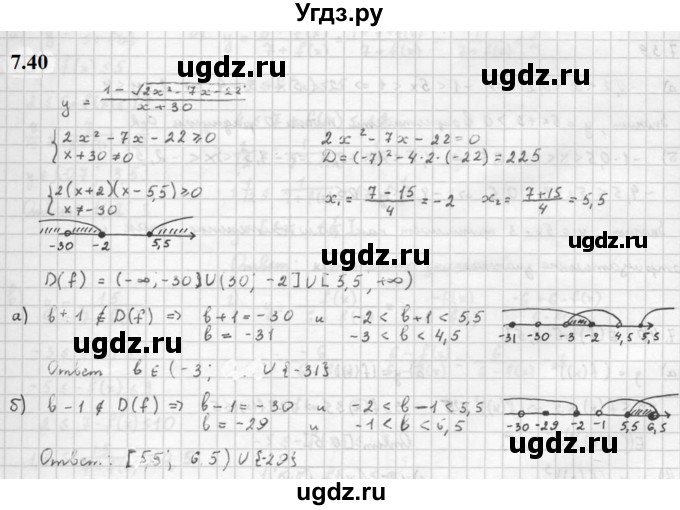 Угдз.ру
7.40
ugdz.ru ugdz.ru
y = (1 - √(2x² - 7x - 22)) / (x + 30)
{ 2x² - 7x - 22 ≥ 0    2x² - 7x - 22 = 0
{ x + 30 ≠ 0    D = (-7)² - 4·2·(-22) = 225
{ 2(x+2)(x-5,5) ≥ 0    x₁ = (7 - 15)/4 = -2    x₂ = (7+15)/4 = 5,5
{ x ≠ -30
ugdz.ru ugdz.ru
-30 -2 5,5
D(f) = (-∞; -30)U(30; -2]U[5,5; +∞)
а) b + 1 ∉ D(f) => b + 1 = -30 и -2 < b+1 < 5,5
b = -31    -3 < b < 4,5
-31 -30 -3 -2 4,5 5,5
ugdz.ru ugdz.ru
Ответ b ∈ (-3; U {-31}
б) b - 1 ∉ D(f) => b - 1 = -30 и -2 < b - 1 < 5,5
b = -29 и -1 < b < 6,5
-30 -29 -2 -1 5,5 6,5
Ответ: [5,5; 6,5) U {-29}
ugdz.ru ugdz.ru
ugdz.ru